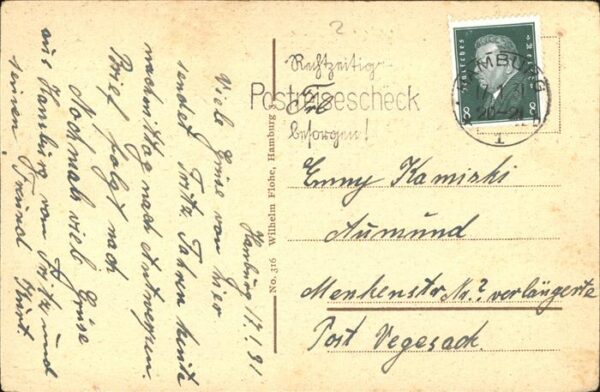 Hamburg 17.1.31
Viele Grüse von hier
sendet Fritz. Fahren heute
nachmittag nach Antwerpen.
Brief folgt nach
Nochmals viele Grüse
aus Hamburg von Fritz und
seinen Freund Kurt
No. 316 Wilhelm Flohe, Hamburg 3
Rechtzeitig
Postreisescheck
besorgen!
HAMBURG
17.1.31
20-21
1
Deutsches Reich
8 8
Frl
Emmy Kamiski
Aumund
Menkenstr Nr? verlängerte
Post Vegesack